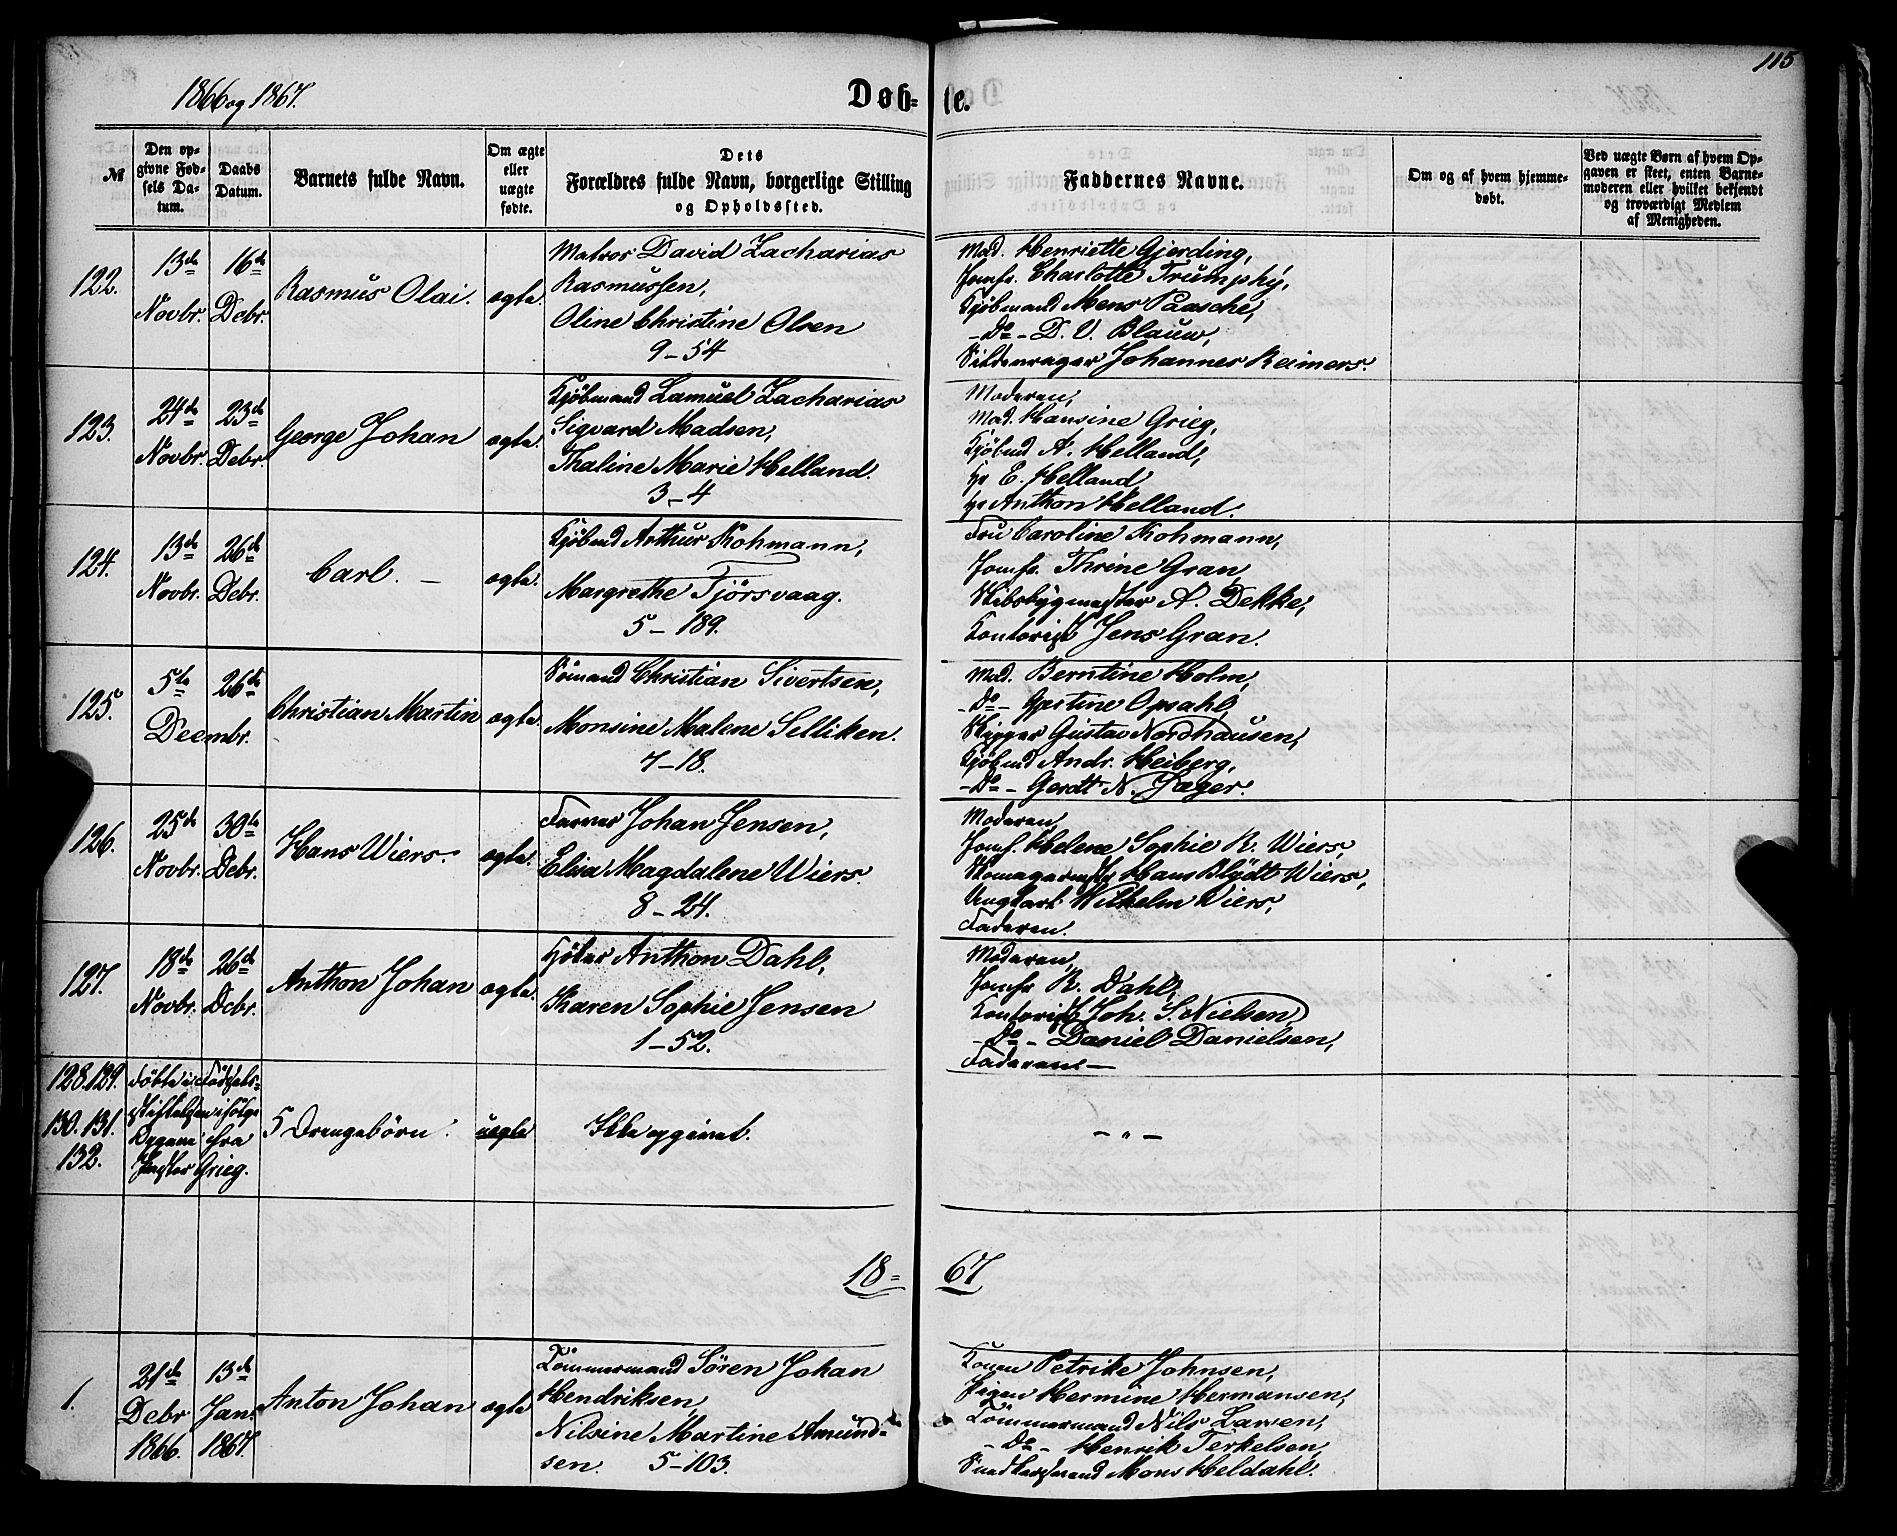 115
1866 og 1867.
Døb-te.
№
Den op-
givne Fød-
sels Da-
tum.
Daabs
Datum.
Barnets fulde Navn.
Om ægte
eller
uægte
fødte.
Dets
Forældres fulde Navn, borgerlige Stilling
og Opholdssted.
Faddernes Navne.
Om og af hvem hjemme-
døbt.
Ved uægte Børn af hvem Op-
gaven er skeet, enten Barne-
moderen eller hvilket bekjendt
og troværdigt Medlem
af Menigheden.
122.
13de
Novbr.
16de
Dcbr.
Rasmus Olai.
ægte
Matros David Zacharias
Rasmussen,
Oline Christine Olsen
9-54
Mad. Henriette Gjerding,
Jomfr. Charlotte Trumphy,
Kjöbmand Mens Paasche,
-Do- D. V. Blauw,
Sildevrager Johannes Reimers.
123.
24de
Novbr.
23de
Debr.
George Johan
ægte.
Kjöbmand Lamuel Zacharias
Sigvard Madsen,
Thaline Marie Helland.
3-4
Moderen,
Mad. Hansine Grieg,
Kjöbmd A. Helland,
Hr E. Helland,
Hr Anthon Helland.
124.
13de
Novbr.
26de
Debr.
Carl. -
ægte.
Kjöbmd Arthur Kohmann,
Margrethe Tjörsvaag.
5-189.
Fru Caroline Kohmann,
Jomfr. Thrine Gran,
Skibsbygmester A. Dekke,
Kontorist Jens Gran.
125.
5te
26de
Decmbr.
Christian Martin
ægte.
Sömand Christian Sivertsen,
Monsine Malene Selliken.
7-18.
Mad. Berntine Holm,
-Do- Gjertine Opsahl,
Skipper Gustav Nordhausen,
Kjöbmd Andr. Heiberg,
-Do- Gerdt N. Jager.
126.
25de
Novbr.
30te
Debr.
Hans Wiers.
ægte.
Farver Johan Jensen,
Elisa Magdalene Wiers.
8-24.
Moderen,
Jomf. Helene Sophie R. Wiers,
Skomagermstr Hans Blydt Wiers,
Ungkarl Wilhelm Wiers,
Faderen.
127.
18de
Novbr.
26de
Dcbr.
Anthon Johan
ægte.
Kjöber Anthon Dahl,
Karen Sophie Jensen
1-52.
Moderen,
Jomfr R. Dahl,
Kontorist Joh. S. Nielsen,
-Do- Daniel Danielsen,
Faderen -
128. 129.
130. 131.
132.
Födte i Födsels-
stiftelsen ifölge
Opgave fra
Grieg.
5 Drengebörn.
uægte
Ikke opgivet.
- " -
18=67
1.
21de
Debr
1866.
13de
Jan.
1867.
Anton Johan
ægte
Tömmermand Sören Johan
Hendriksen,
Nilsine Martine Amund-
sen. 5-103.
Konen Petrike Johnsen,
Pigen Hermine Hermansen,
Tömmermand Nils Larsen,
-Do- Henrik Terkelsen,
Mons Heldahl.